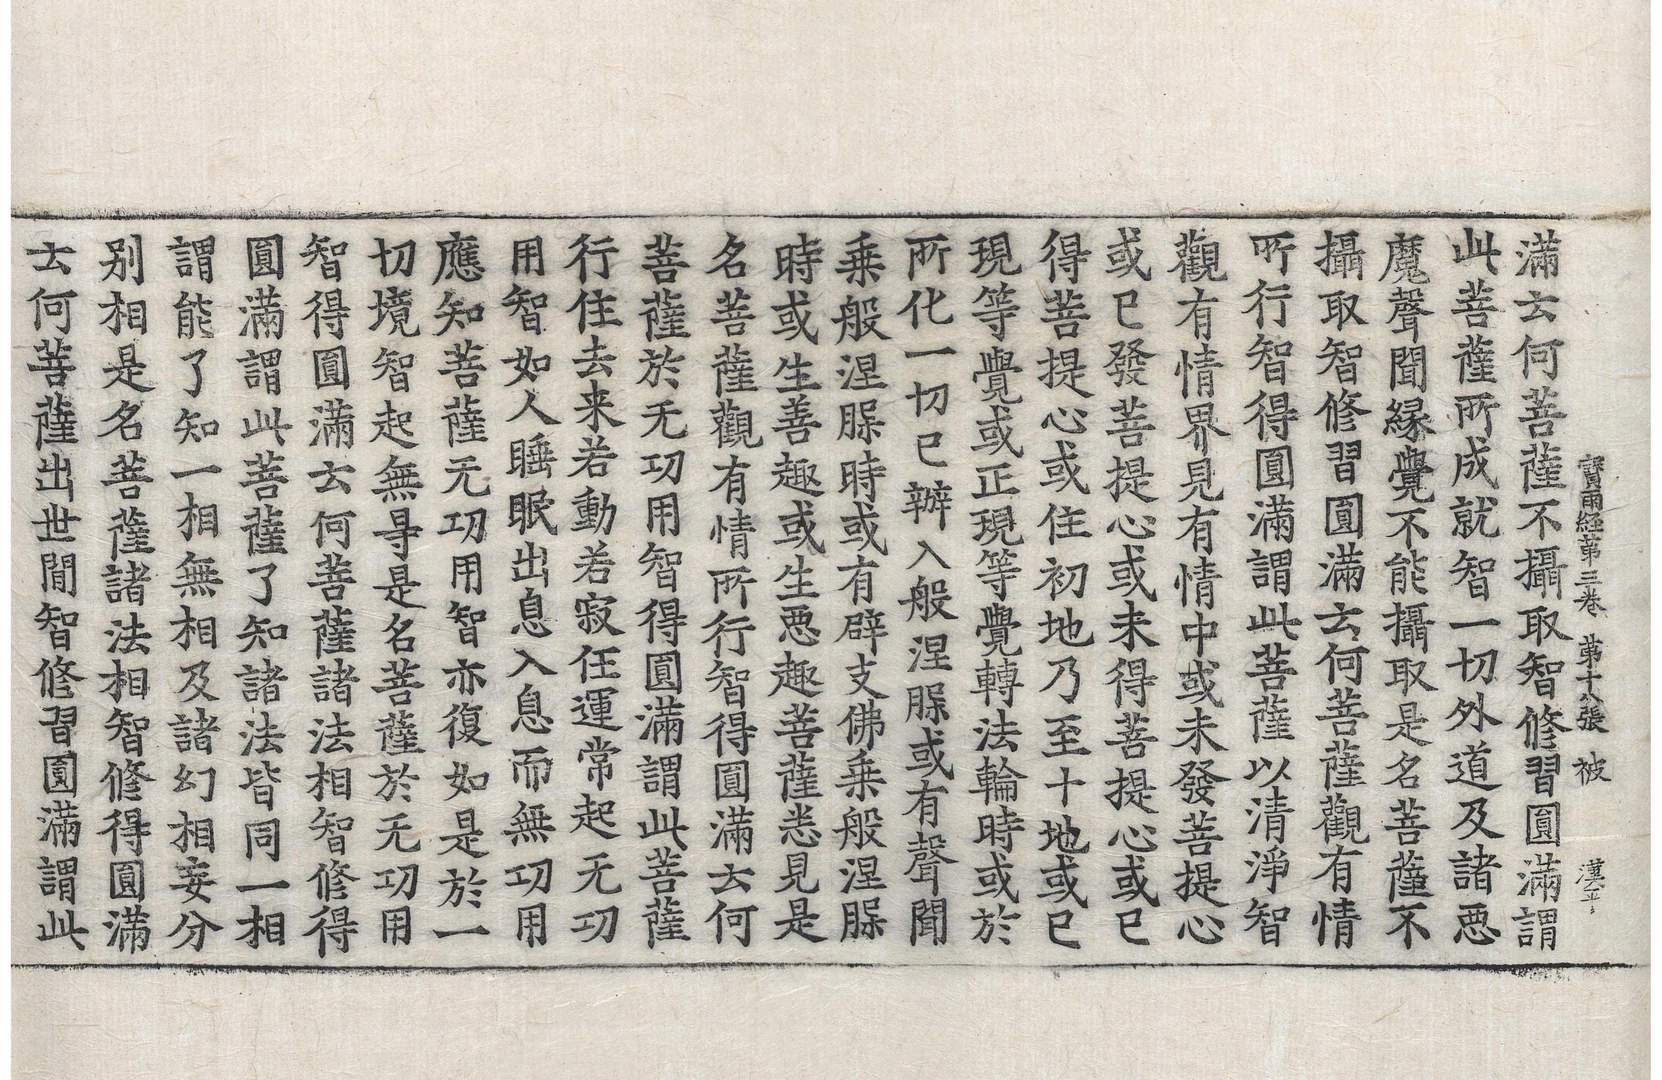 寶雨経苐三卷 苐十八張 被 漢平
滿云何菩薩不攝取智修習圓滿謂
此菩薩所成就智一切外道及諸惡
魔聲聞縁覺不能攝取是名菩薩不
攝取智修習圓滿云何菩薩觀有情
所行智得圓滿謂此菩薩以清淨智
觀有情界見有情中或未發菩提心
或已發菩提心或未得菩提心或已
得菩提心或住初地乃至十地或已
現等覺或正現等覺轉法輪時或於
所化一切已辦入般涅槃或有聲聞
乗般涅槃時或有辟支佛乗般涅槃
時或生善趣或生惡趣菩薩悉見是
名菩薩觀有情所行智得圓滿云何
菩薩於无功用智得圓滿謂此菩薩
行住去来若動若寂任運常起无功
用智如人睡眠出息入息而無功用
應知菩薩无功用智亦復如是於一
切境智起無㝵是名菩薩於无功用
智得圓滿云何菩薩諸法相智修得
圓滿謂此菩薩了知諸法皆同一相
謂能了知一相無相及諸幻相妄分
别相是名菩薩諸法相智修得圓滿
云何菩薩出世閒智修習圓滿謂此